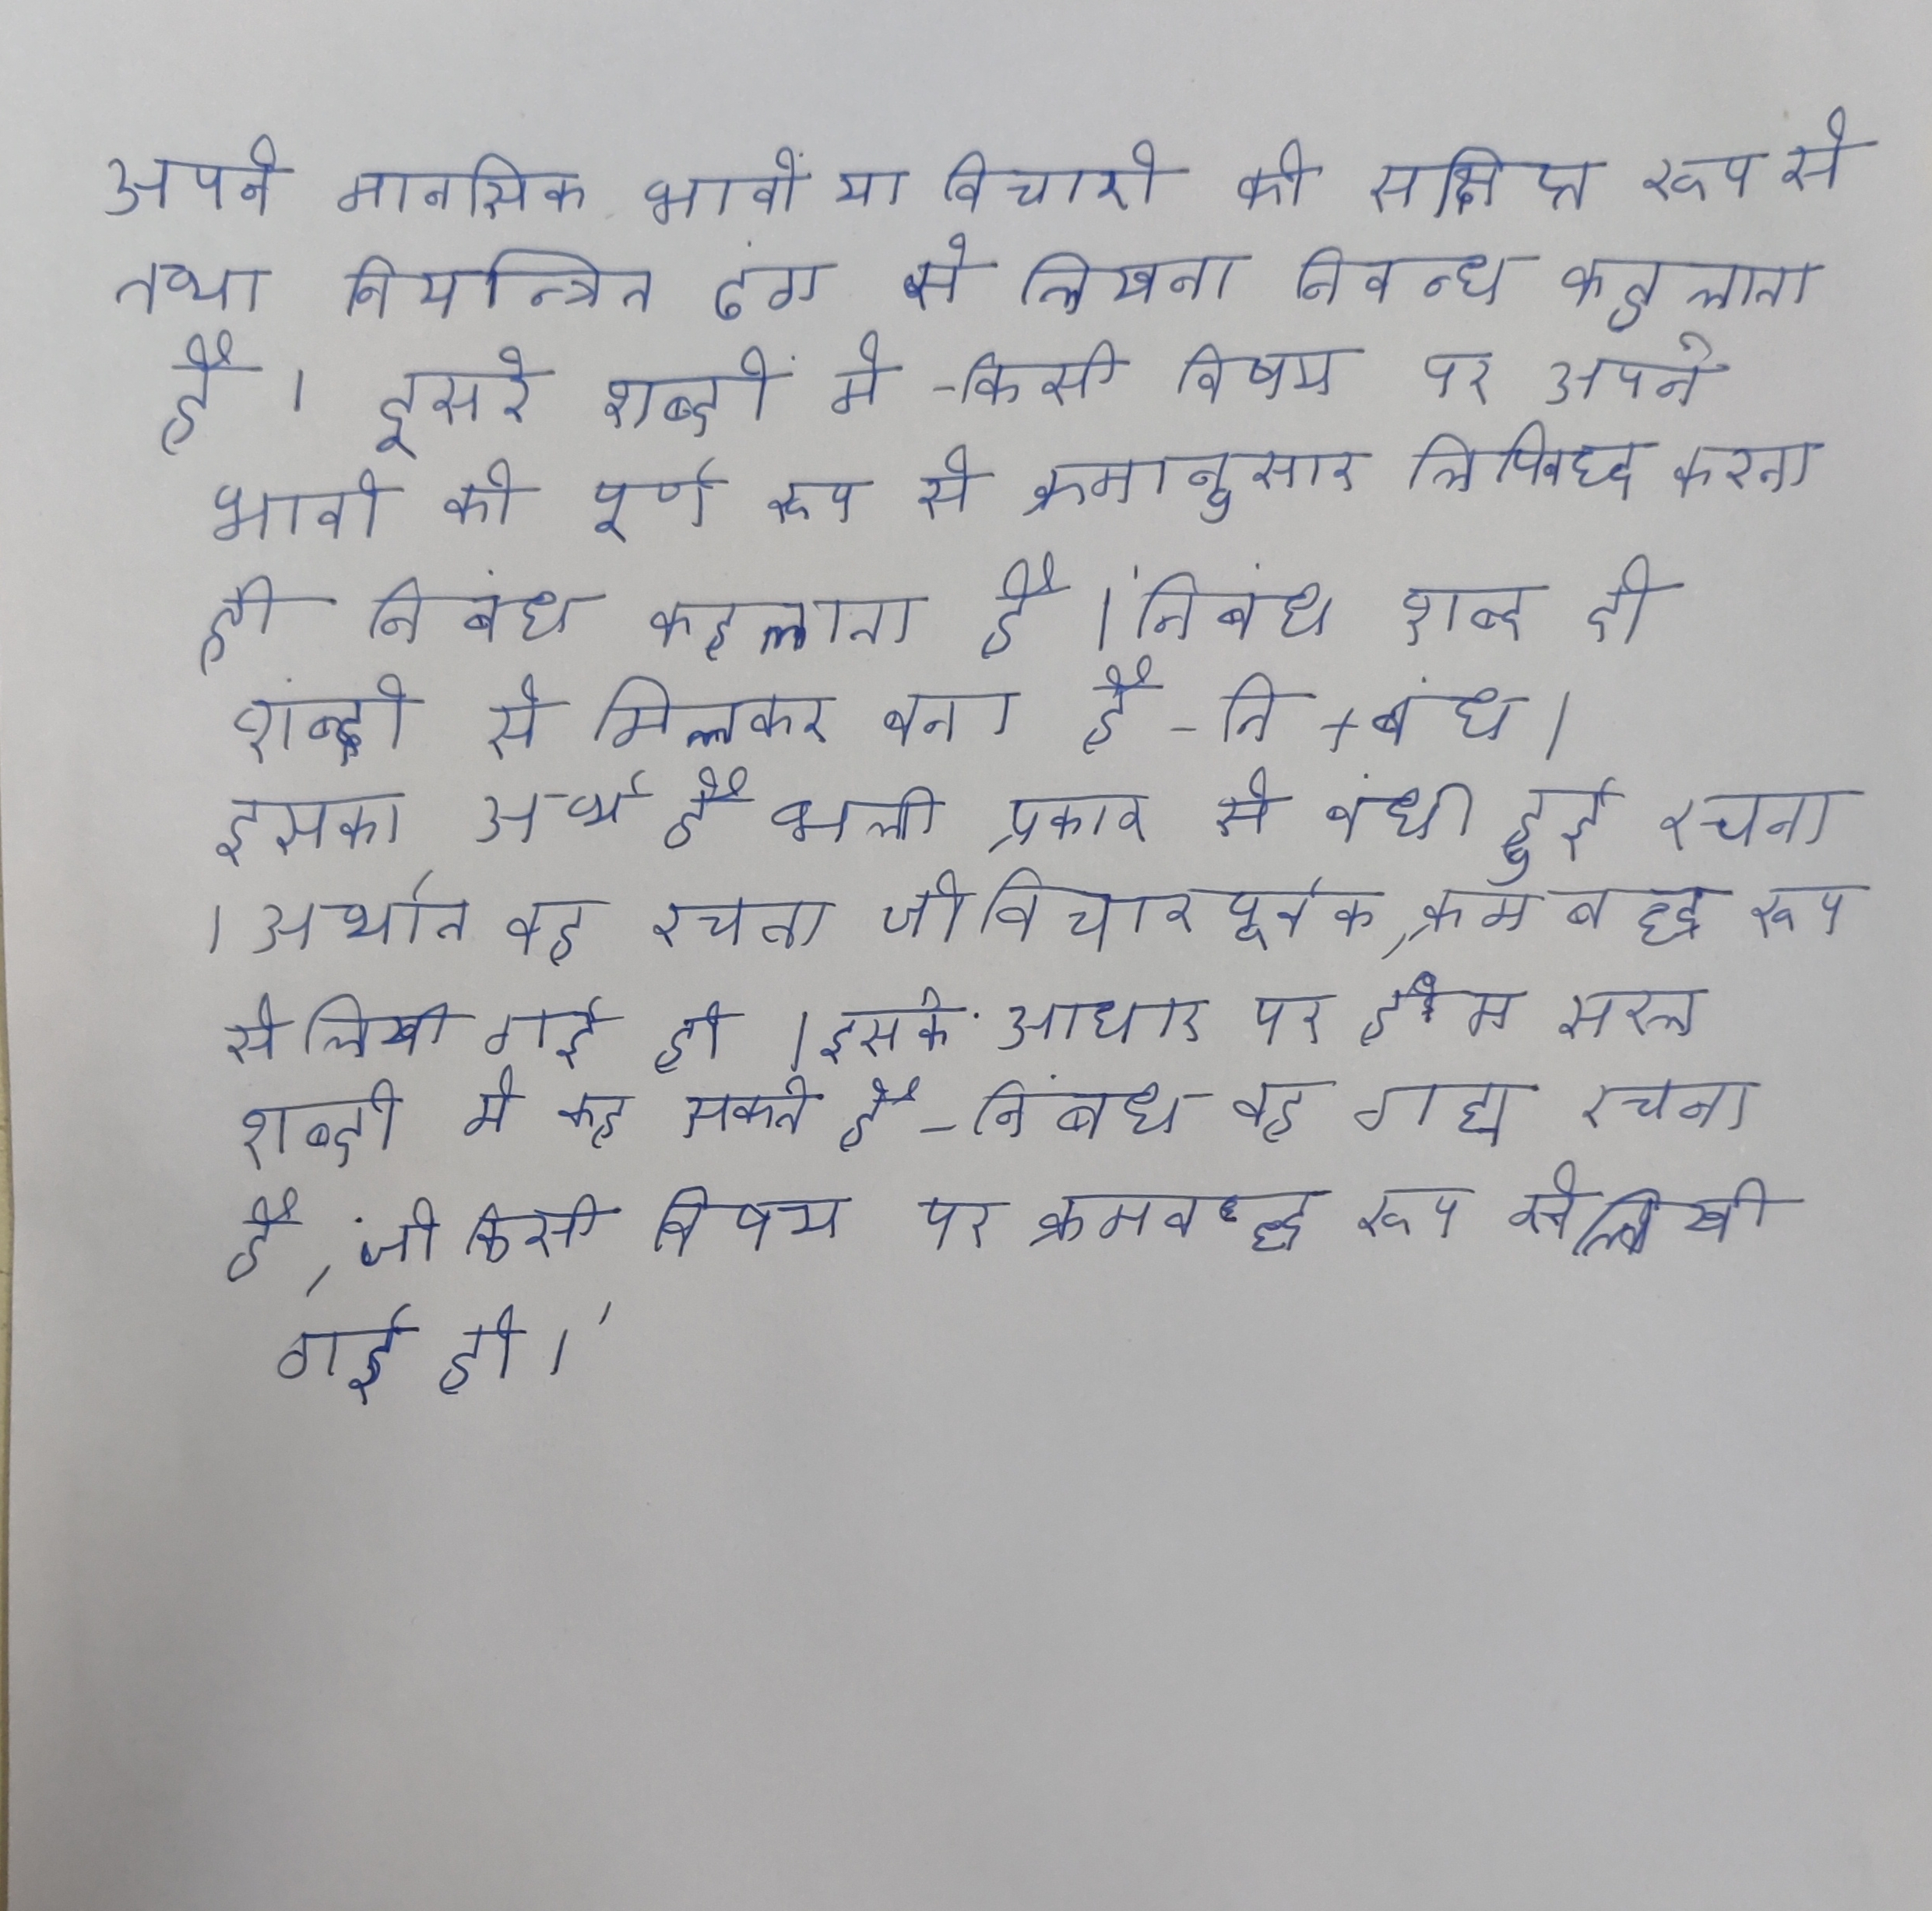 अपने मानसिक भावों या विचारो को सक्षिप्त रूप से
तथा नियन्त्रित ढंग से लिखना निवन्ध कहलाता
है । दूसरे शब्दों मे -किसी विषय पर अपने
भावो को पूर्ण रूप से क्रमानुसार लिपिबध्द करना
ही निबंध कहलाता है ।'निबंध शब्द दो
शंब्दो से मिलकर बना है - नि +बंध ।
इसका अर्थ है भली प्रकार से बंधी हुई रचना
। अर्थात वह रचना जो विचारपूर्वक, क्रमबद्ध रूप
से लिखी गई हो । इसके आधार पर हम सरल
शब्दो मे कह सकते है -निंबध वह गद्य रचना
है, जो किसी विषय पर क्रमबद्ध रूप से लिखी
गई हो ।'